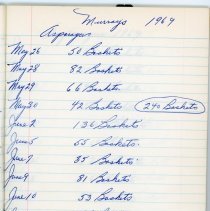 Murrays 1967
Asparagus
May 26 50 Baskets
May 28 82 Baskets
May 29 66 Baskets
May 30 42 Baskets 240 Baskets
June 2 136 Baskets
June 5 55 Baskets
June 7 35 Baskets
June 9 81 Baskets
June 10 53 Baskets